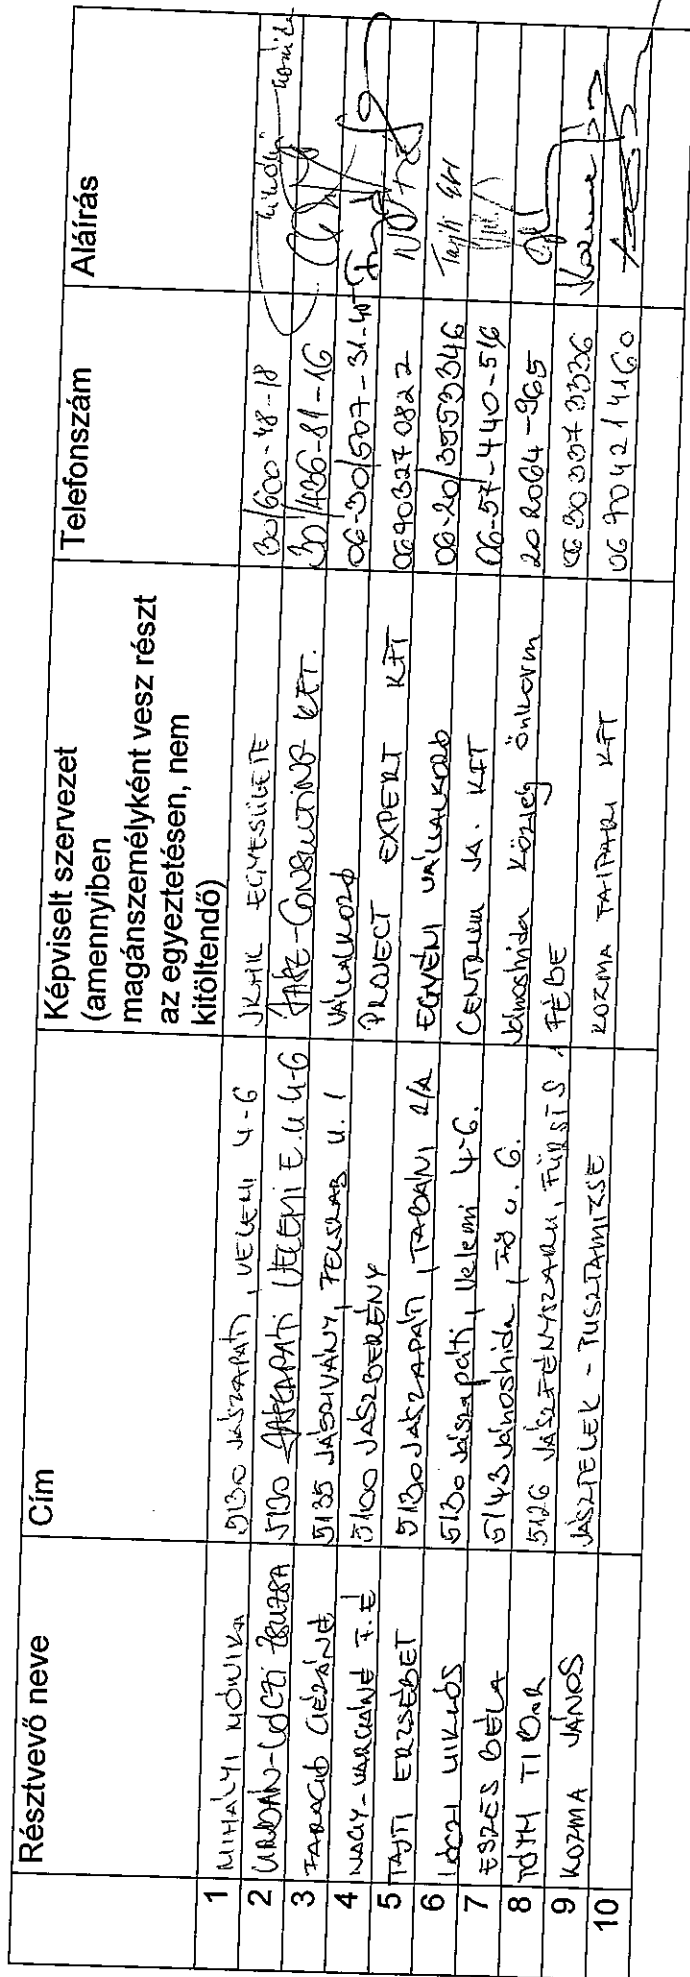 Résztvevő neve Cím Képviselt szervezet Telefonszám Aláírás
(amennyiben
magánszemélyként vesz részt
az egyeztetésen, nem
kitöltendő)
1 MIHÁLYI MÓNIKA 5130 JÁSZAPÁTI, VELEMI 4-6 JKHK EGYESÜLETE 30/600-48-18
2 URBÁN-LÓCZI ZSUZSA 5130 JÁSZAPÁTI VELEMI E. U 4-6 JÁSZ-CONSULTING KFT. 30/436-81-16
3 FARAGÓ GÉZÁNÉ 5135 JÁSZIVÁNY, FELSZAB U. 1 VÁLLALKOZÓ 06-30/507-31-40
4 NAGY-VARGÁNÉ F. É 5100 JÁSZBERÉNY PROJECT EXPERT KFT 06703270822
5 TAJTI ERZSÉBET 5130 JÁSZAPÁTI, TABÁNI 2/A EGYÉNI VÁLLALKOZÓ 06-20/3553346 Tajti
6 LÓCZI MIKLÓS 5130 Jászapáti, Velemi 4-6. CENTRUM KFT 06-57-440-516
7 ESZES BÉLA 5143 Jánoshida, Fő u. 6. Jánoshida Község Önkorm 202064-965
8 TÓTH TIBOR 5126 JÁSZFÉNYSZARU, FÜRST S. FÉBE 06303373336
9 KOZMA JÁNOS JÁSZTELEK - PUSZTAMIZSE KOZMA FAIPARI KFT 06704214160 Kozma
10